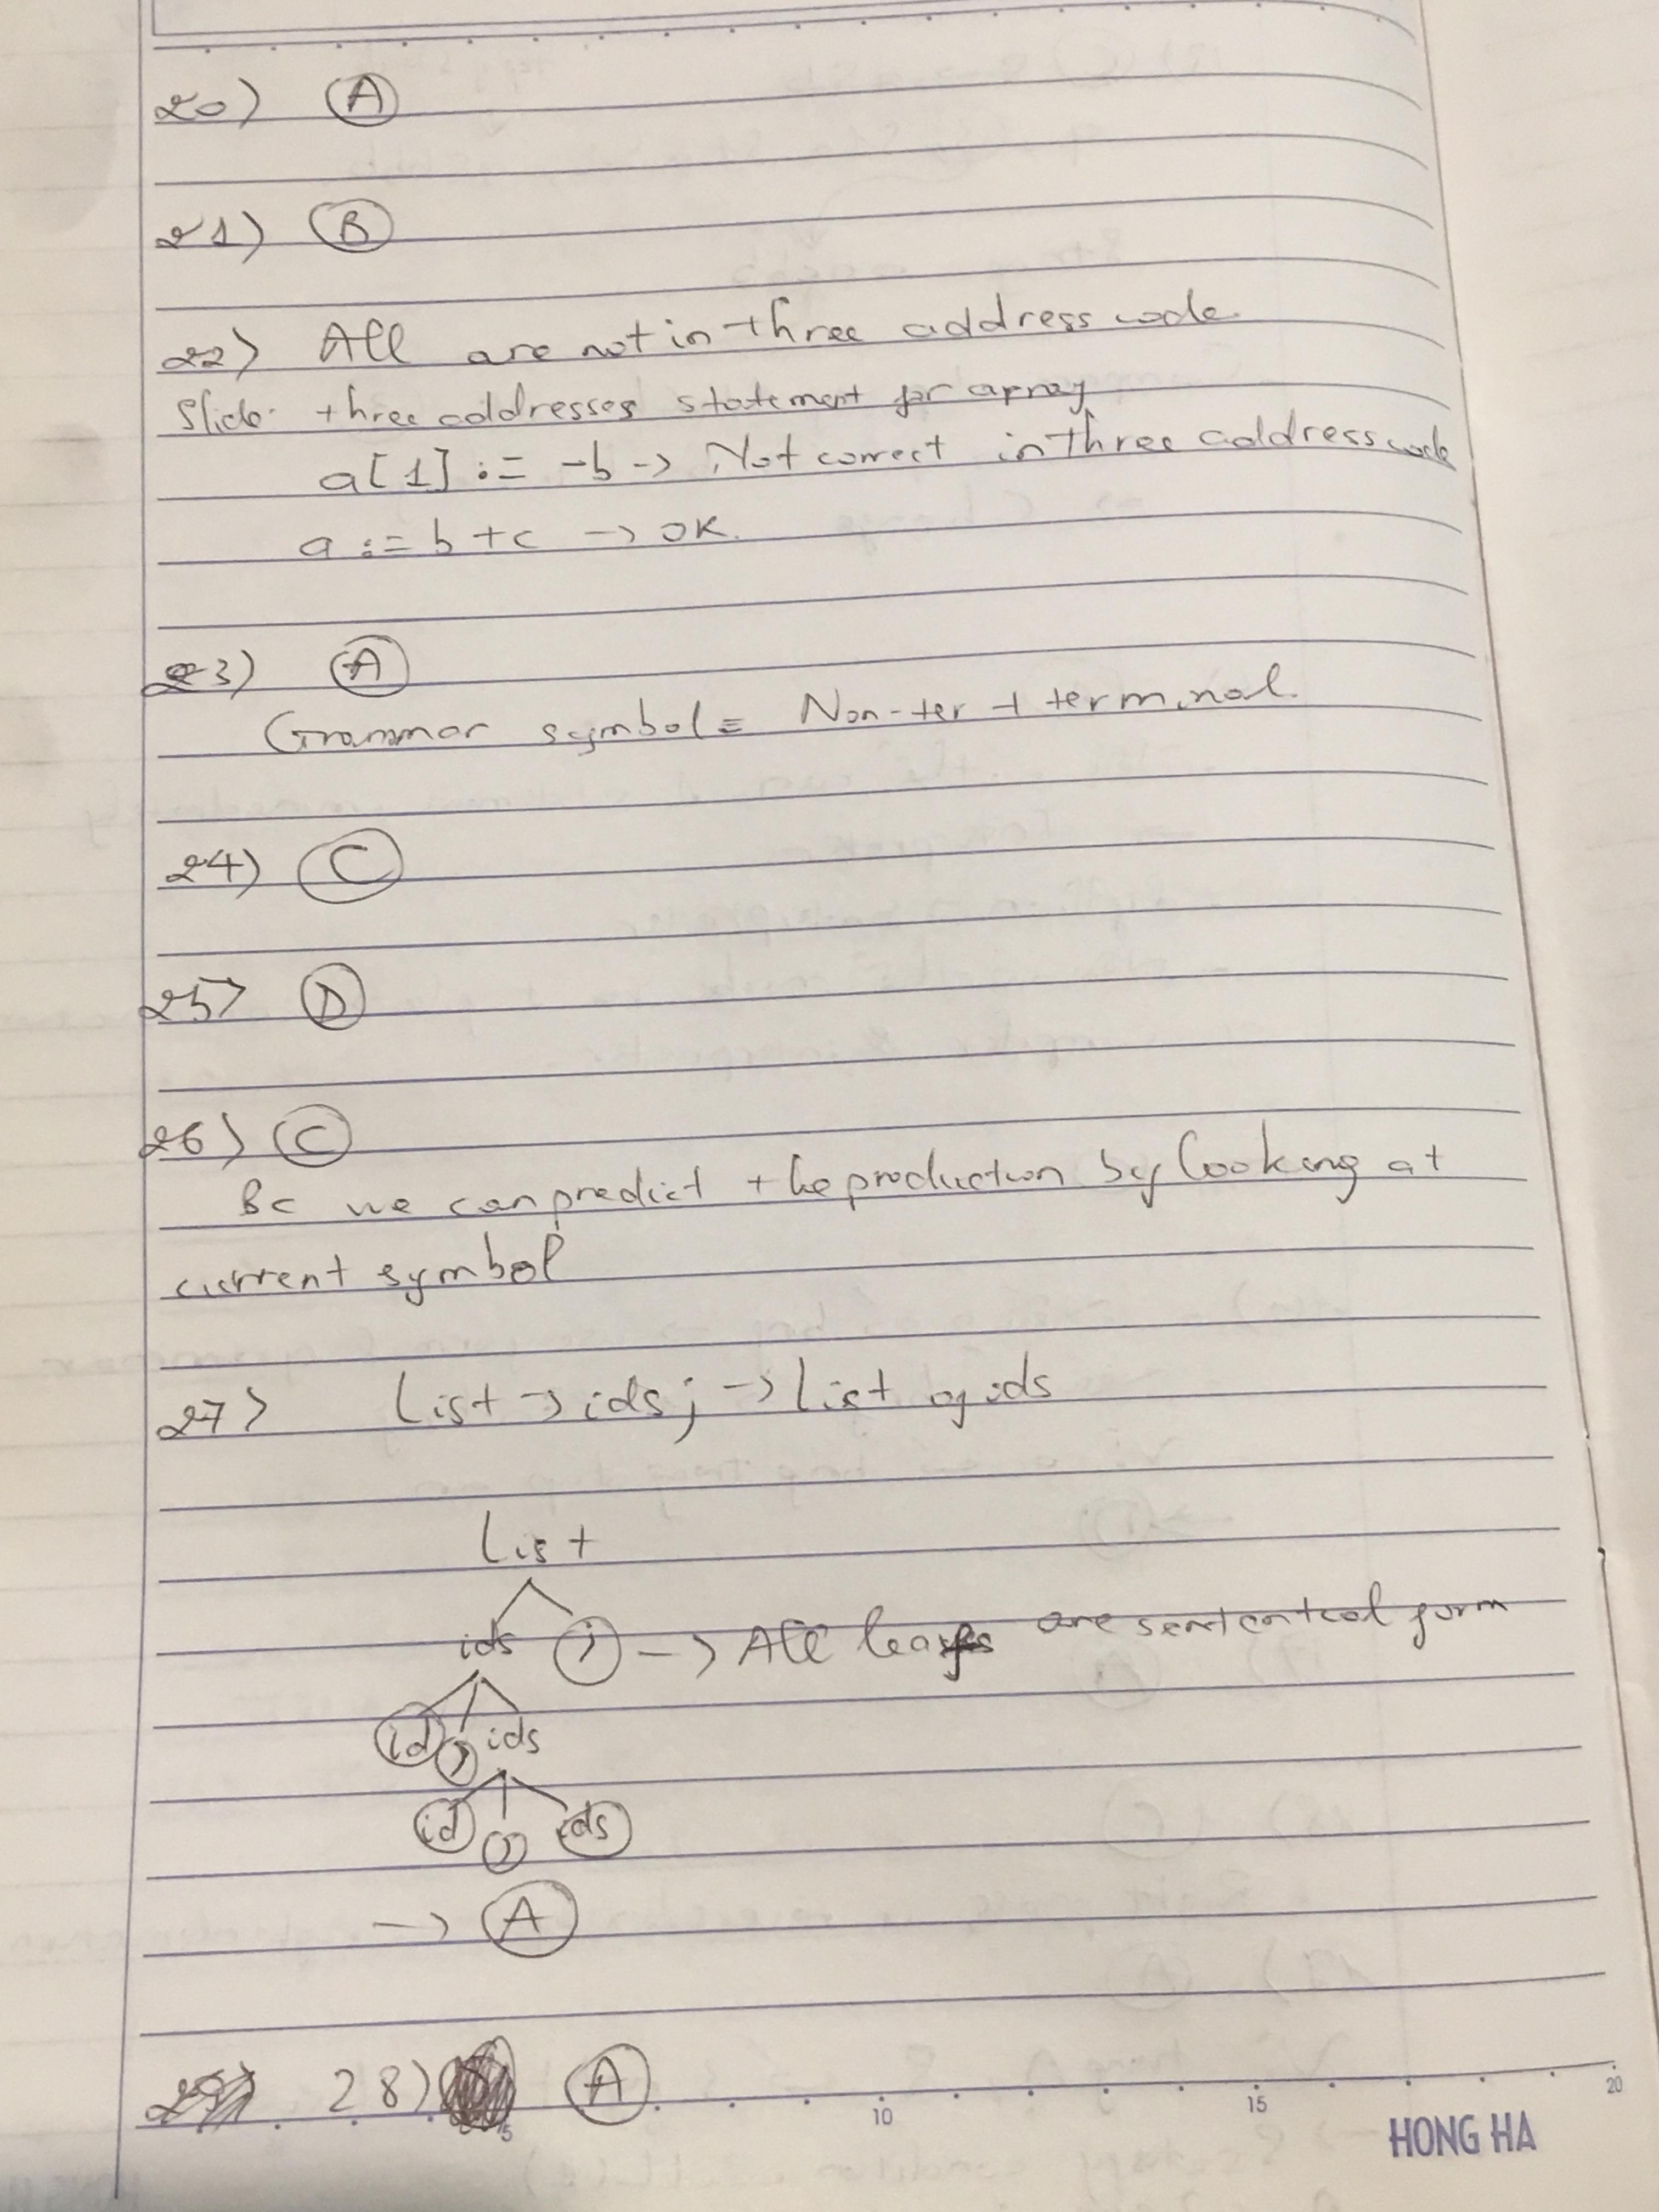 20) A
21) B
22) All are not in three address code
Slide: three addresses statement for array
a[1] := -b -> Not correct in three address code
a := b + c -> OK.
23) A
Grammar symbol = Non-ter + terminal
24) C
25) D
26) C
Bc we can predict the production by looking at
current symbol
27) List -> ids; -> List of ids
List
ids ; -> All leafs are sentential form
id , ids
id , ids
-> A
28) A
5 10 15 20
HONG HA